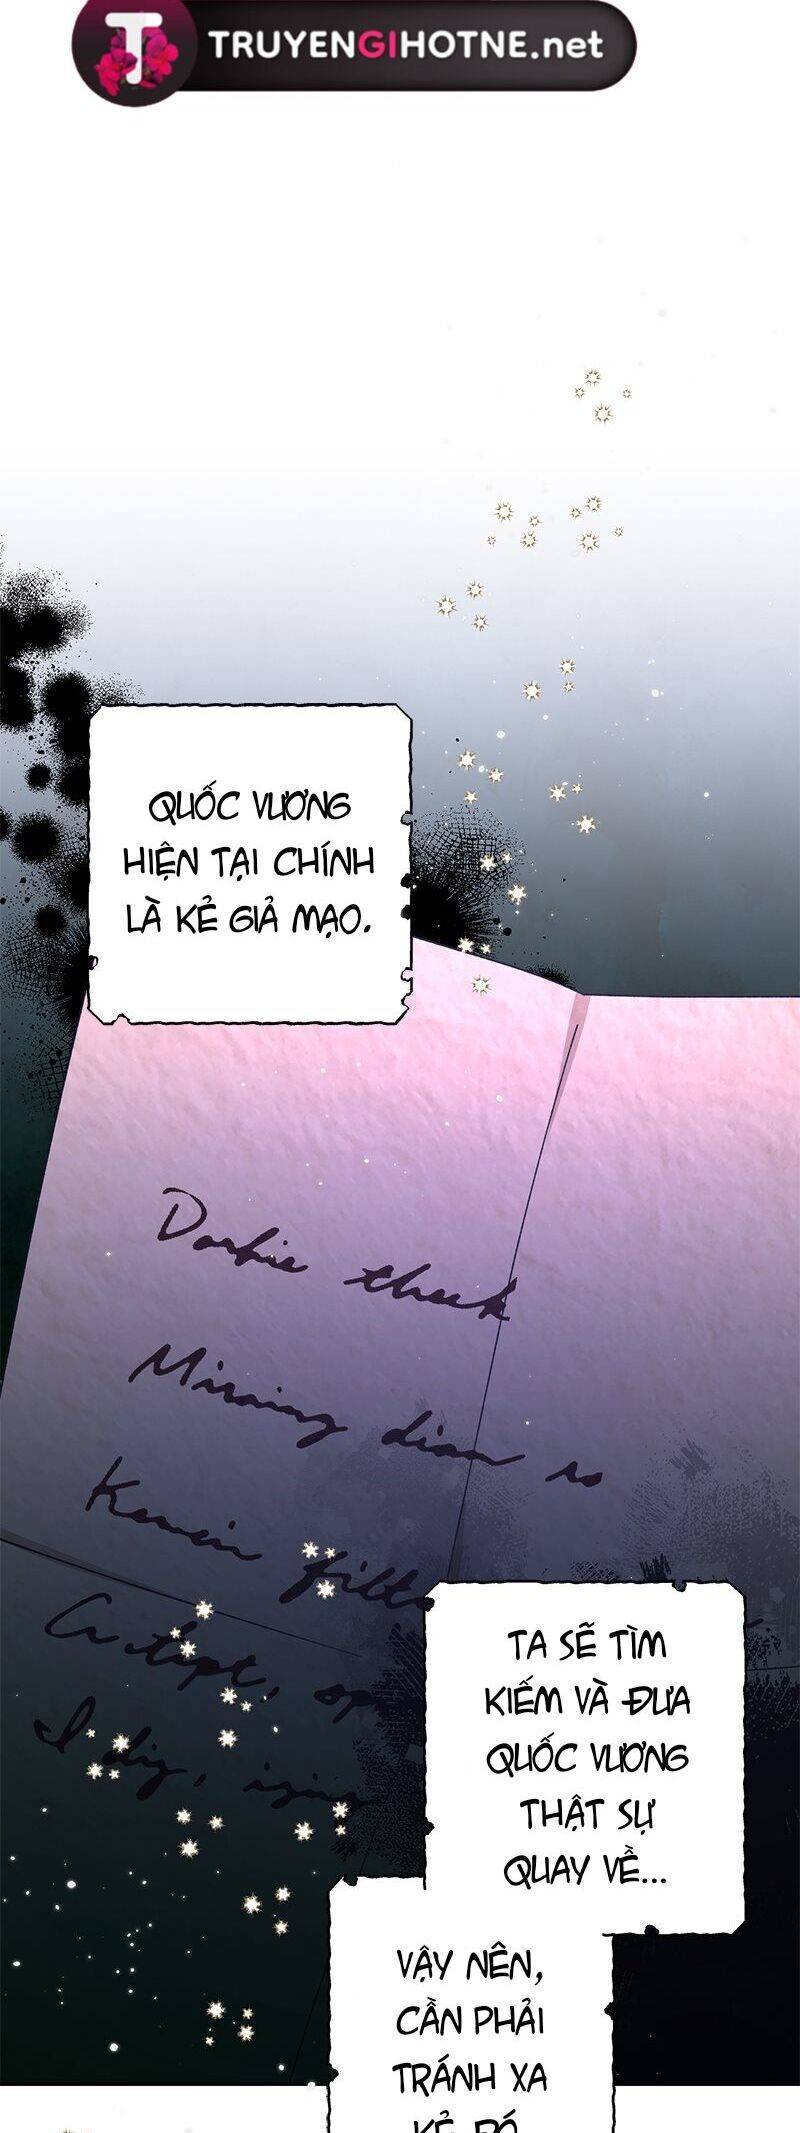 T TRUYENGIHOTNE.net
QUỐC VƯƠNG
HIỆN TẠI CHÍNH
LÀ KẺ GIẢ MẠO.
Missing dian
I dig,
TA SẼ TÌM
KIẾM VÀ ĐƯA
QUỐC VƯƠNG
THẬT SỰ
QUAY VỀ...
VẬY NÊN,
CẦN PHẢI
TRÁNH XA